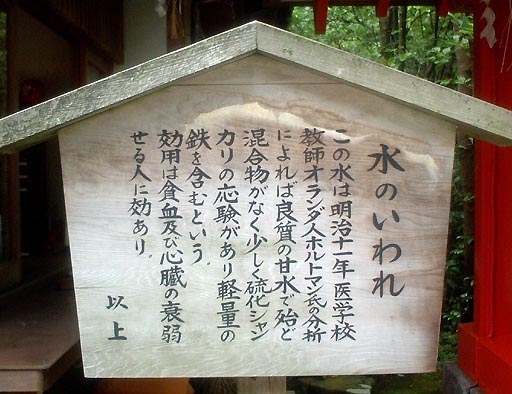 水のいわれ
この水は明治十一年医学校
教師オランダ人ホルトマン氏の分析
によれば良質の甘水で殆ど
混合物がなく少しく硫化シャン
カリの応験があり軽量の
鉄を含むという
効用は貧血及び心臓の衰弱
せる人に効あり
以上